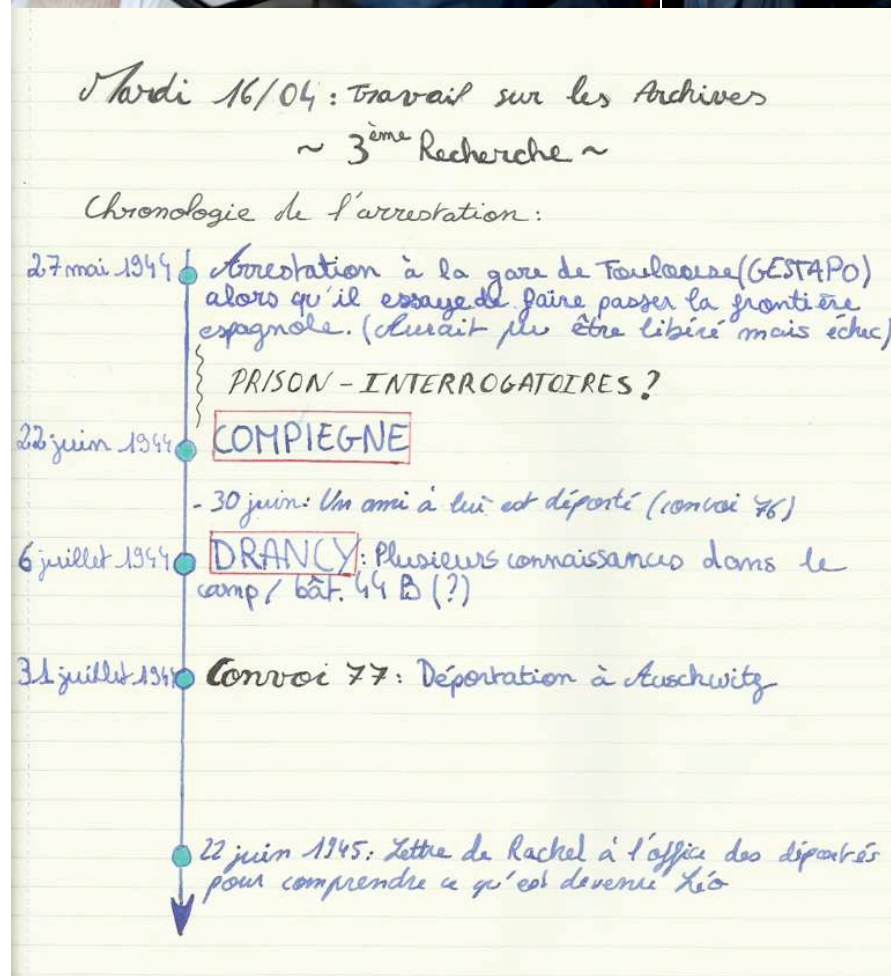 Mardi 16/04 : Travail sur les Archives
~ 3ème Recherche ~
Chronologie de l'arrestation :
27 mai 1944 Arrestation à la gare de Toulouse (GESTAPO)
alors qu'il essaye de faire passer la frontière
espagnole. (Aurait pu être libéré mais échec)
PRISON - INTERROGATOIRES ?
22 juin 1944 COMPIEGNE
- 30 juin : Un ami à lui est déporté (convoi 76)
6 juillet 1944 DRANCY : Plusieurs connaissances dans le
camp / bât. 44 B (?)
31 juillet 1944 Convoi 77 : Déportation à Auschwitz
22 juin 1945 : Lettre de Rachel à l'office des déportés
pour comprendre ce qu'est devenu Léo